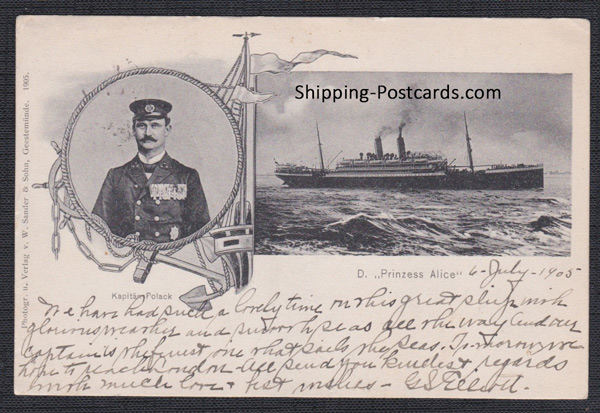 Shipping-Postcards.com
Photogr. u. Verlag v. W. Sander & Sohn, Geestemünde. 1905.
Kapitän Polack
D. „Prinzess Alice“ 6-July-1905
We have had such a lovely time on this great ship with
glorious weather and smooth seas all the way and our
captain is the finest one what sails the seas. To-morrow we
hope to reach London - All send you kindest regards
with much love & best wishes - G S Elliott.